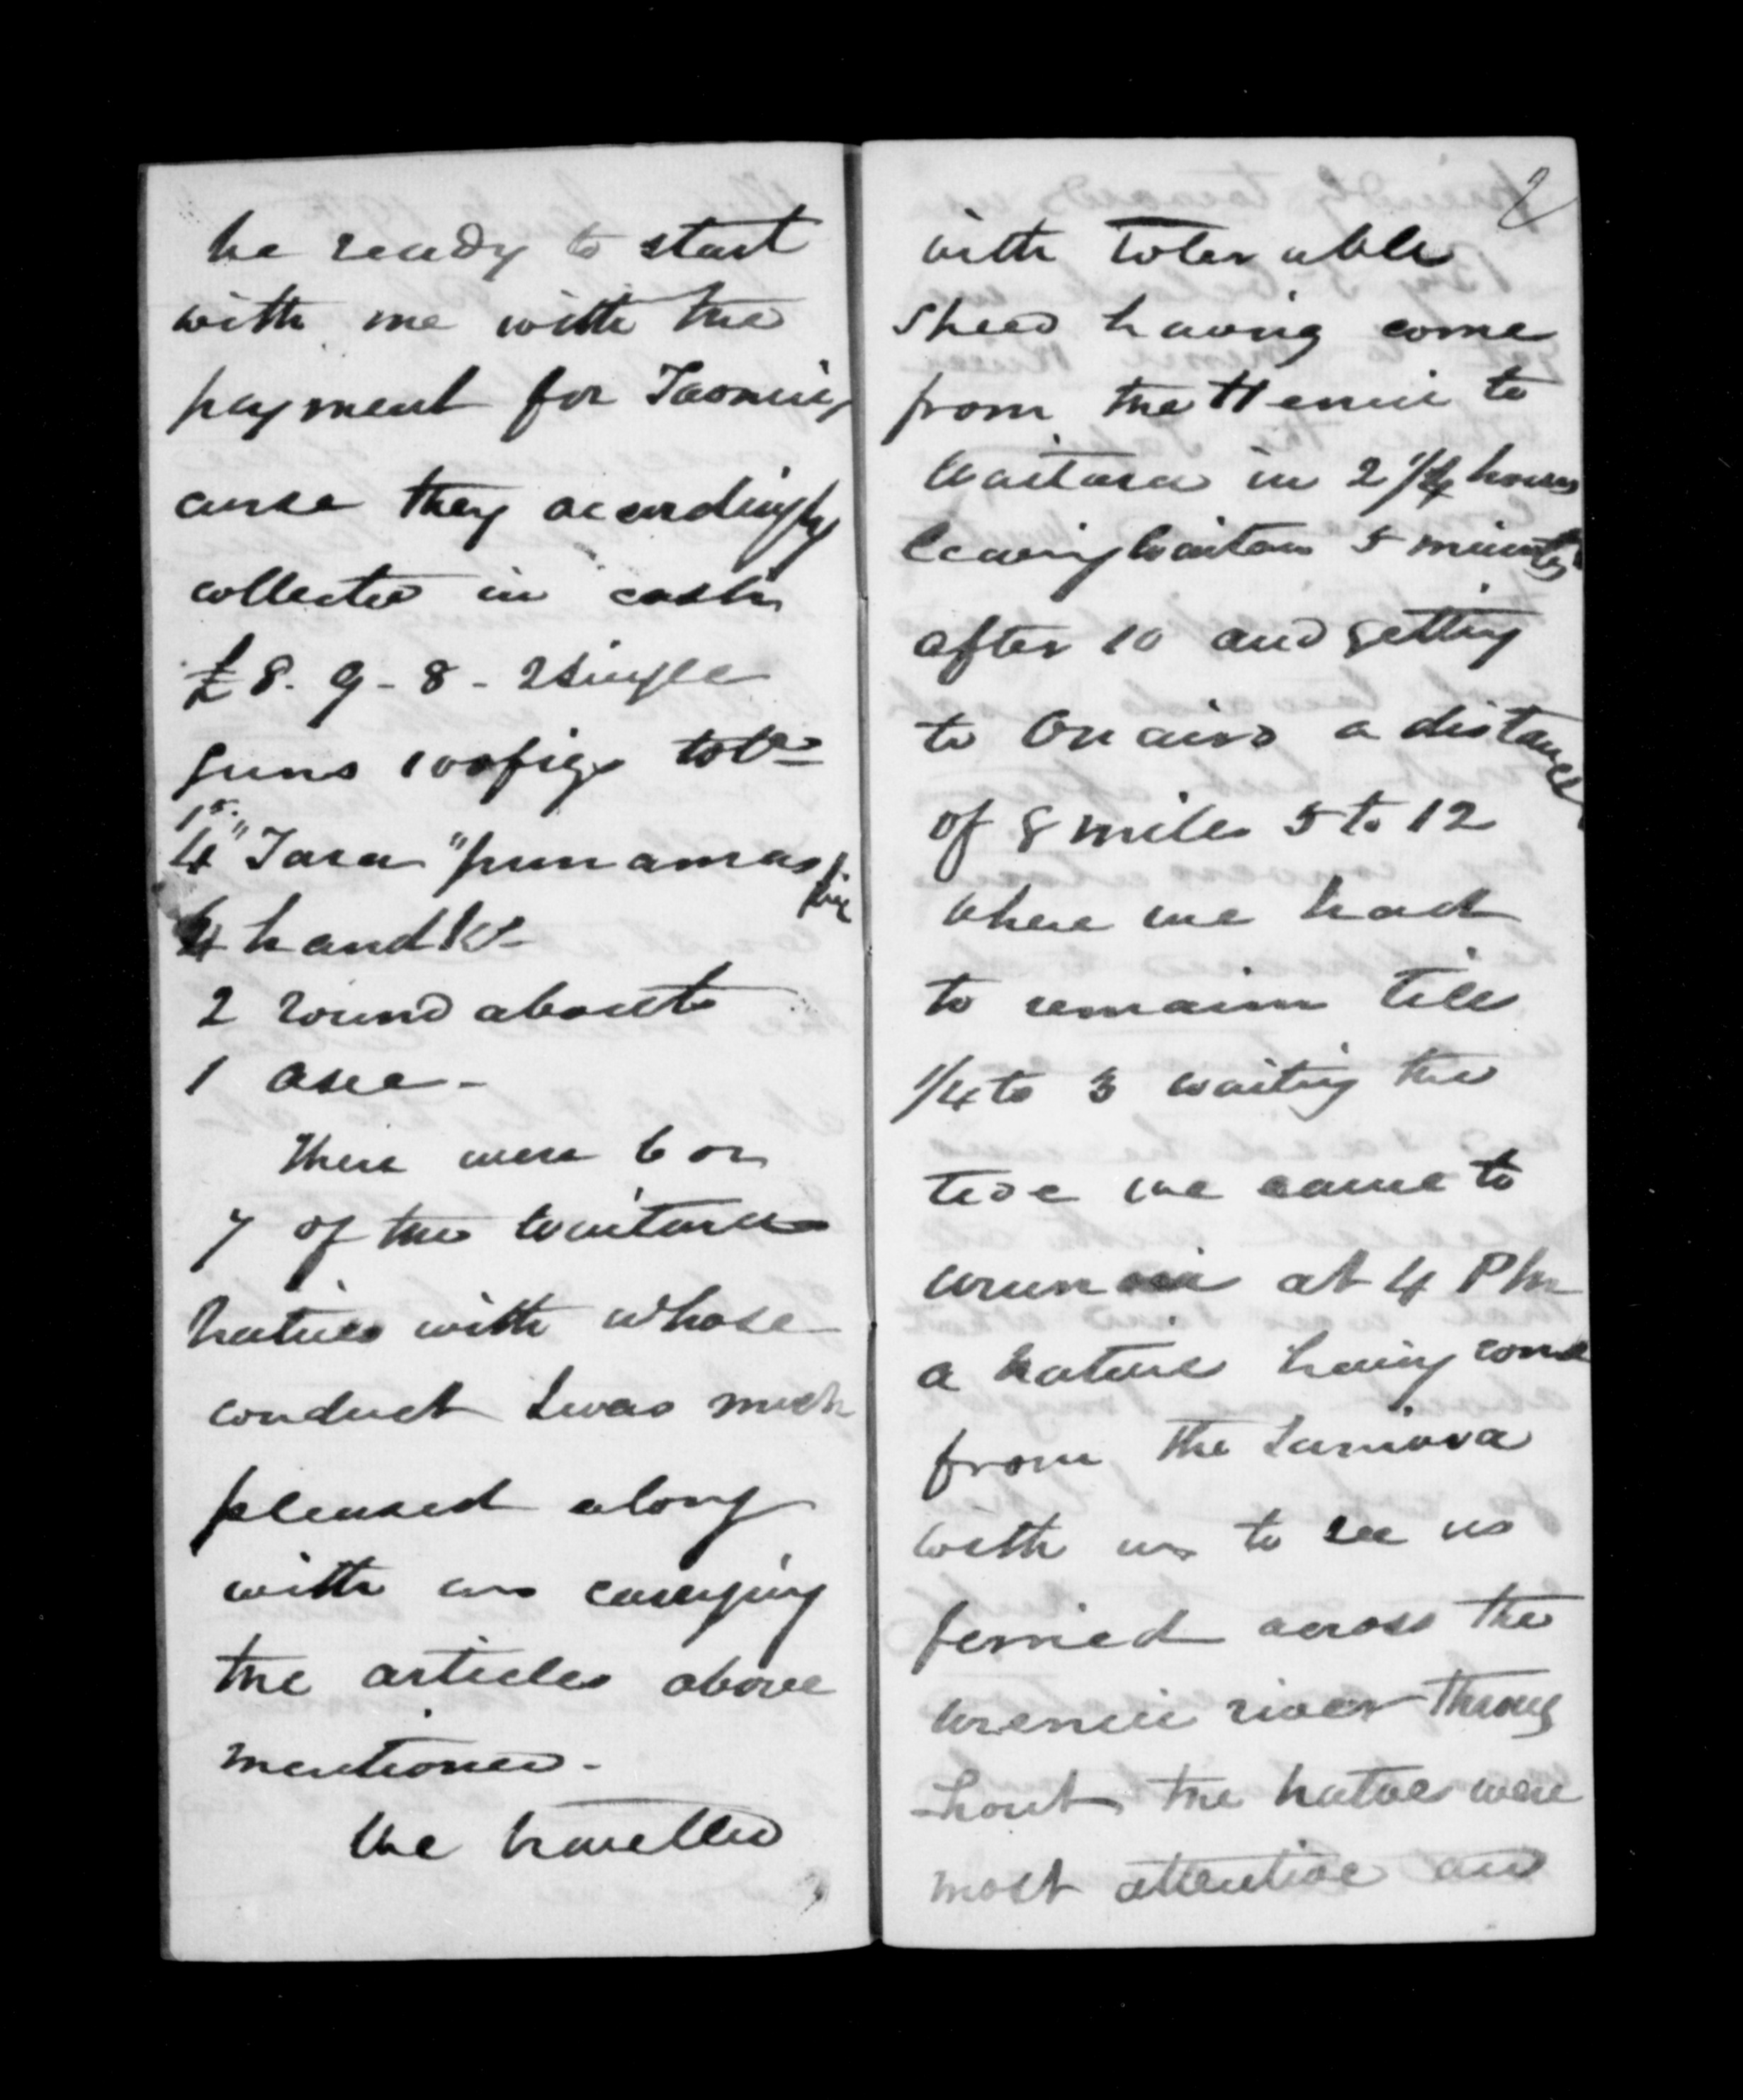 be ready to start
with me with the
payment for Taonui,
curse they accordingly
collected in cash
£8. 9 - 8 - 2 single
guns 100 figs tobo
15.
4 "Tara" punamas
4 handks
2 round abouts
1 axe -
There were 6 or
7 of the Waitara
natives with whose
conduct I was much
pleased along
with us carrying
the articles above
mentioned -
We travelled
2
with tolerable
speed having come
from the Henui to
Waitara in 2 1/4 hours
leaving Waitara 5 minutes
after 10 and getting
to Onairo a distance
of 8 miles 5 to 12
where we had
to remain till
1/4 to 3 waiting the
tide we came to
at 4 PM
a native having come
from the Taniwa
with us to see us
ferried across the
Urenui river throug
-hout the natives were
most attentive and